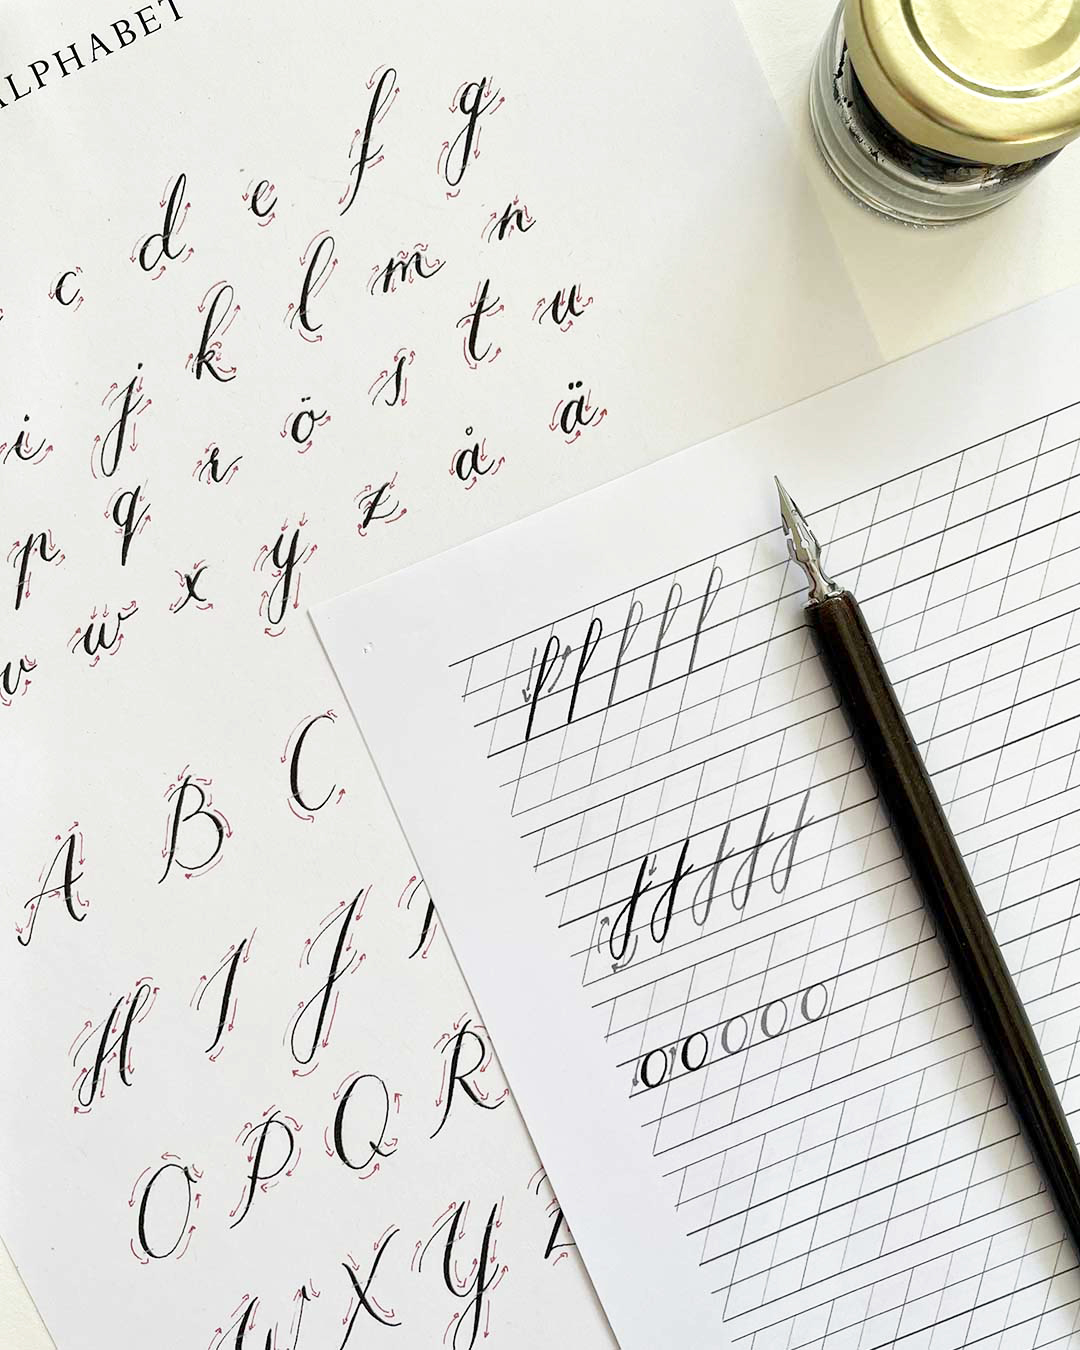 ALPHABET
c d e f g
i j k l m n
p q r ö s t u
v w x y z å ä
A B C
H I J
O P Q R
W X Y
O O O O O